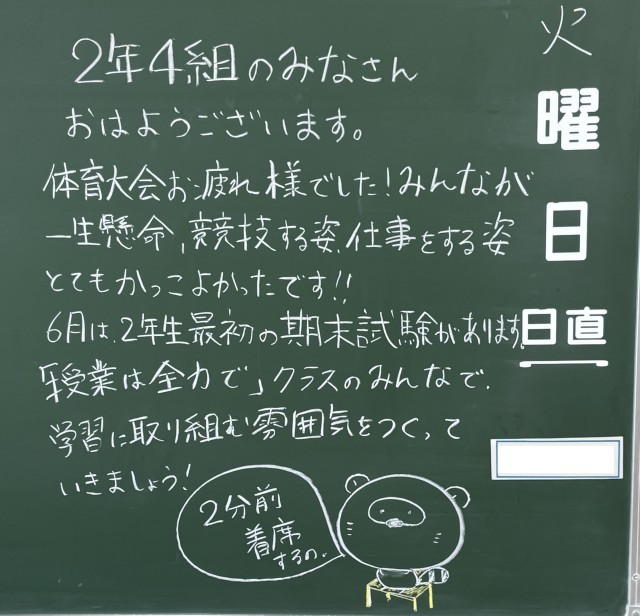 2年4組のみなさん
おはようございます。
体育大会お疲れ様でした!みんなが
一生懸命、競技する姿、仕事をする姿
とてもかっこよかったです!!
6月は、2年生最初の期末試験があります。
「授業は全力で」クラスのみんなで、
学習に取り組む雰囲気をつくって
いきましょう!
2分前
着席
するの。
火
曜
日
日直